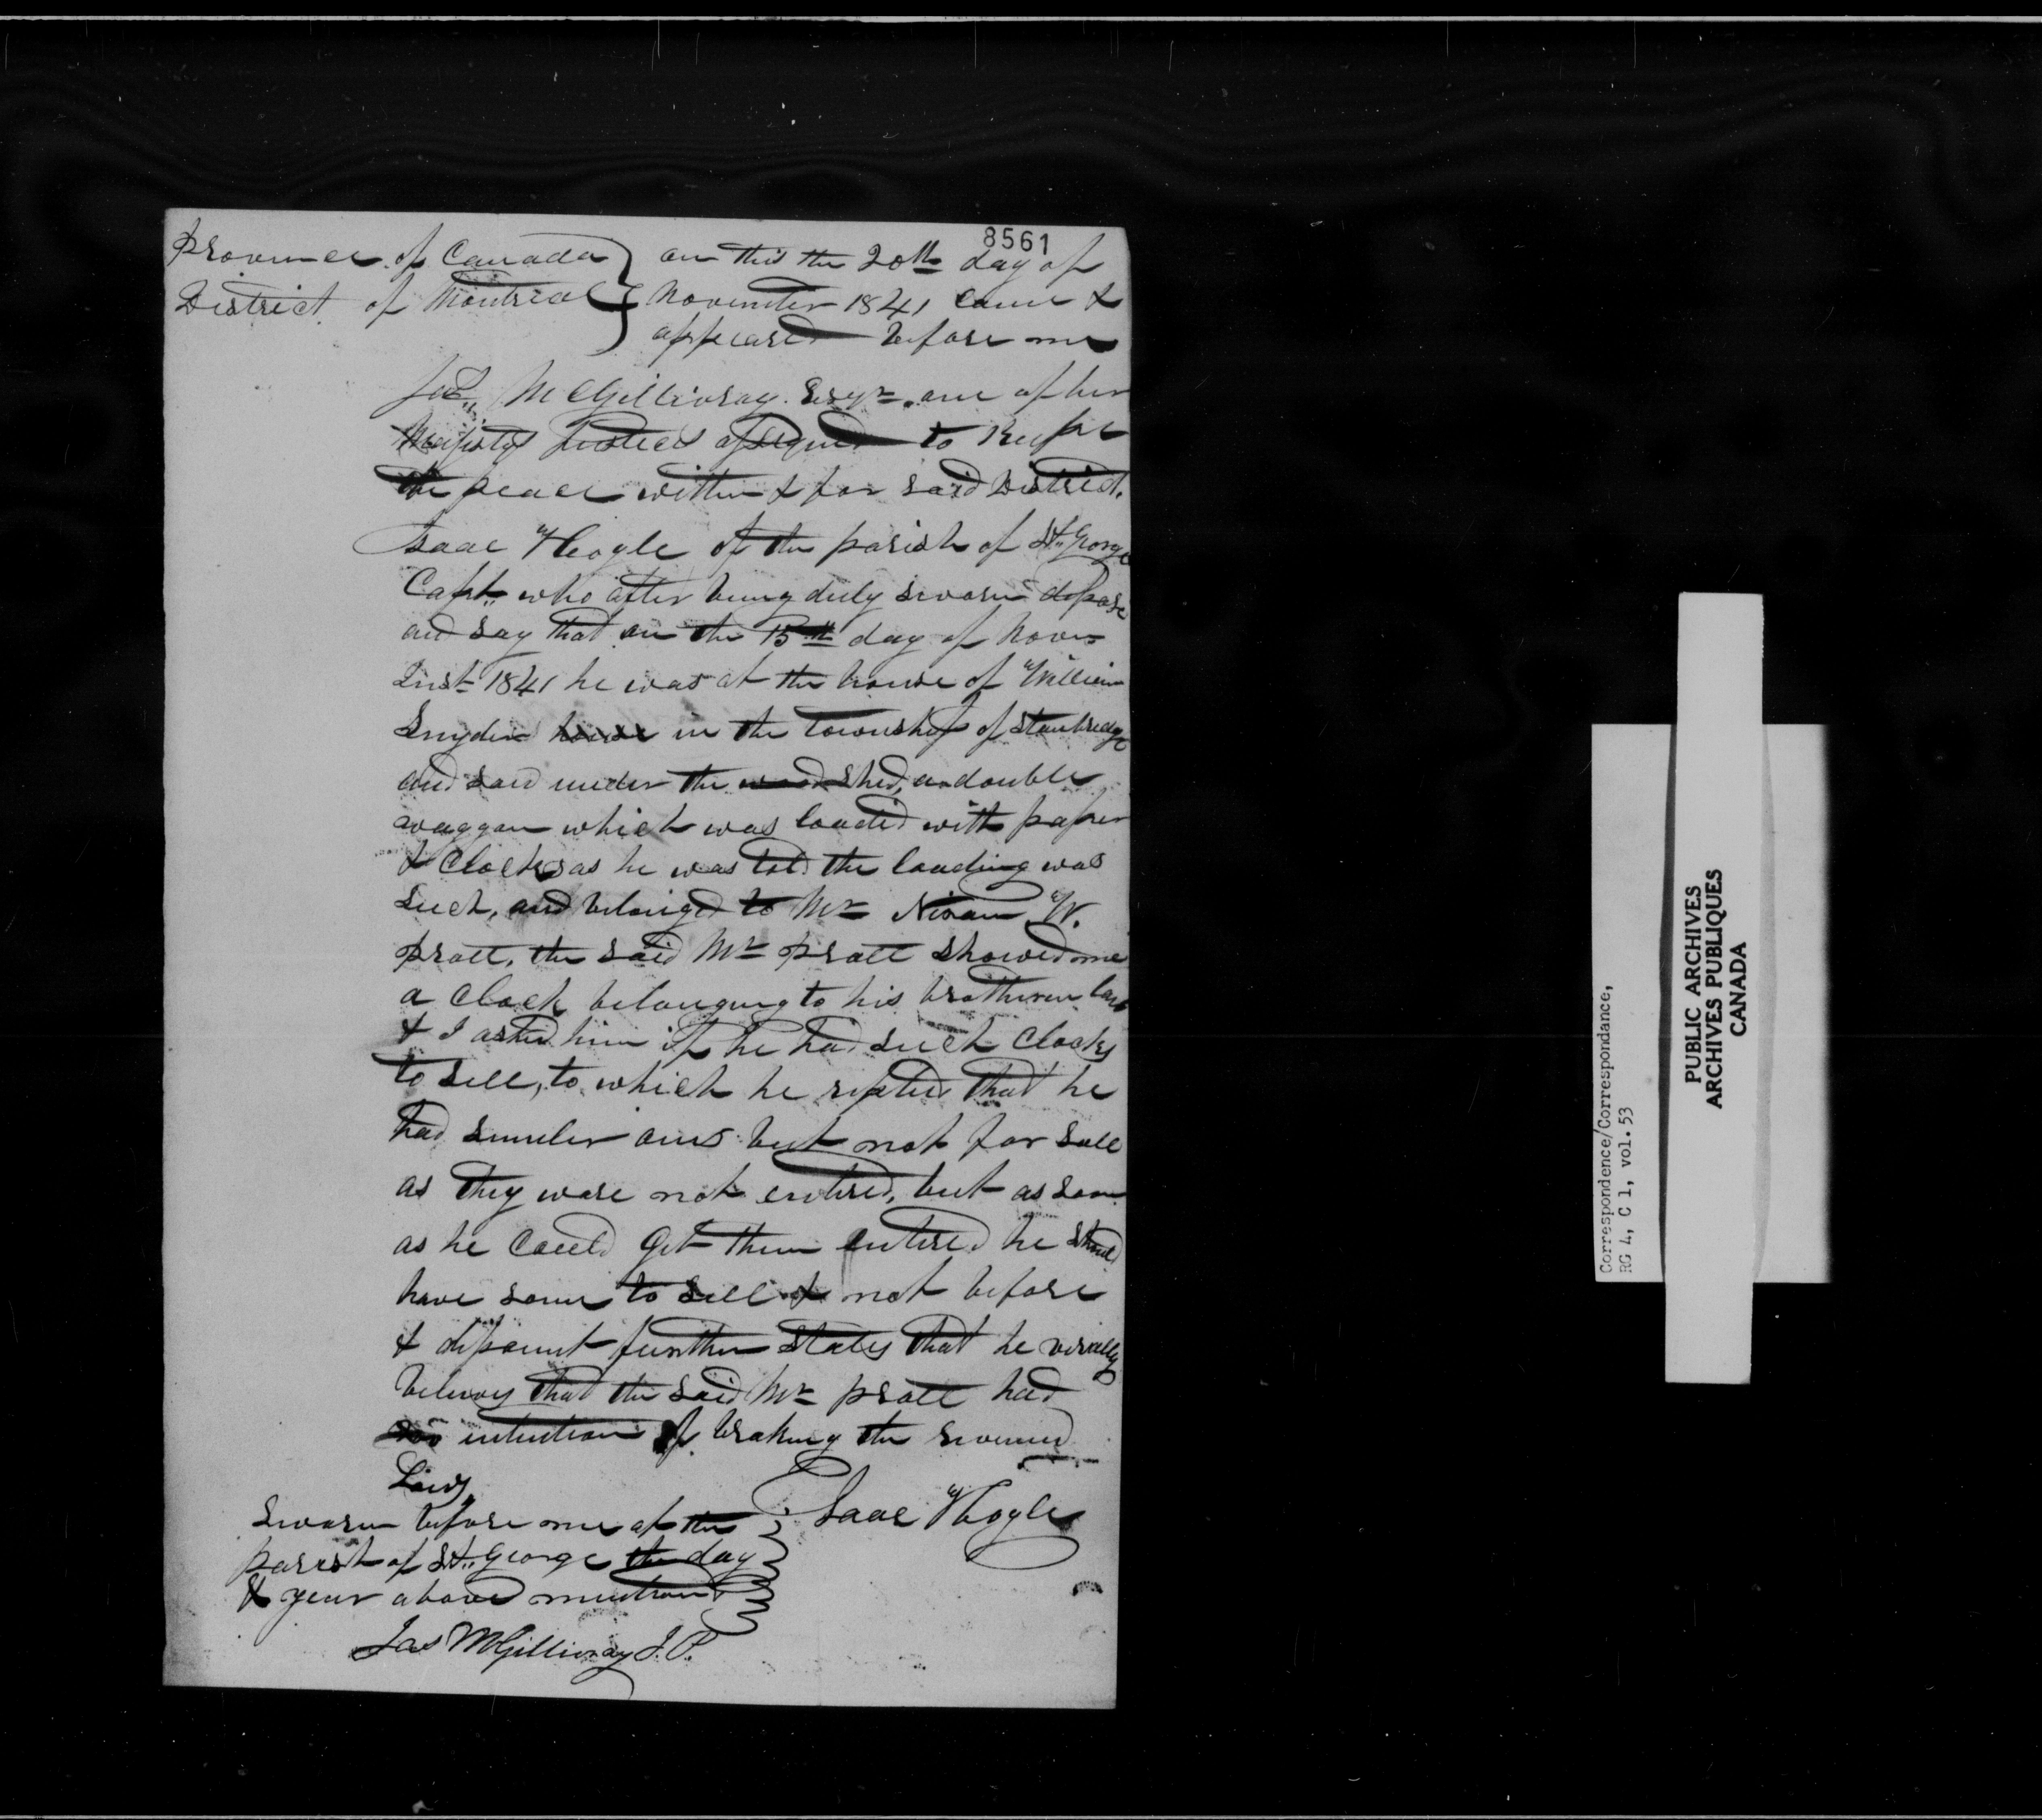 8561
Province of Canada } on this the 20th day of
District of Montreal } November 1841 came &
appeared before me
Jas McGillivray Esqr one of her
Majistys Justices assigned to Keep
the peace within & for said District.
Isaac Hogle of the parish of St. George
Capt. who after being duly sworn depose
and say that on the 15th day of Novr
Inst 1841 he was at the house of William
Snyder in the township of Stanbridge
and saw under the shed, a double
waggon which was loaded with paper
& Clocks as he was told the loading was
such, and belonged to Mr W.
pratt, the said Mr pratt showed me
a Clock belonging to his brother in law
& I asked him if he had such Clocks
to sell, to which he replied that he
had simuler ons but not for sale
as they ware not entired, but as soon
as he could get them entired he should
have some to sell & not before
& deponent further states that he verially
beleves that the said Mr pratt had
no intention of braking the revenue
Laws
Sworn before me at the
parish of St. George the day
& year above mentiond
Isaac Hogle
Jas McGillivray J.P.
Correspondence/Correspondance,
RG 4, C 1, vol. 53
PUBLIC ARCHIVES
ARCHIVES PUBLIQUES
CANADA